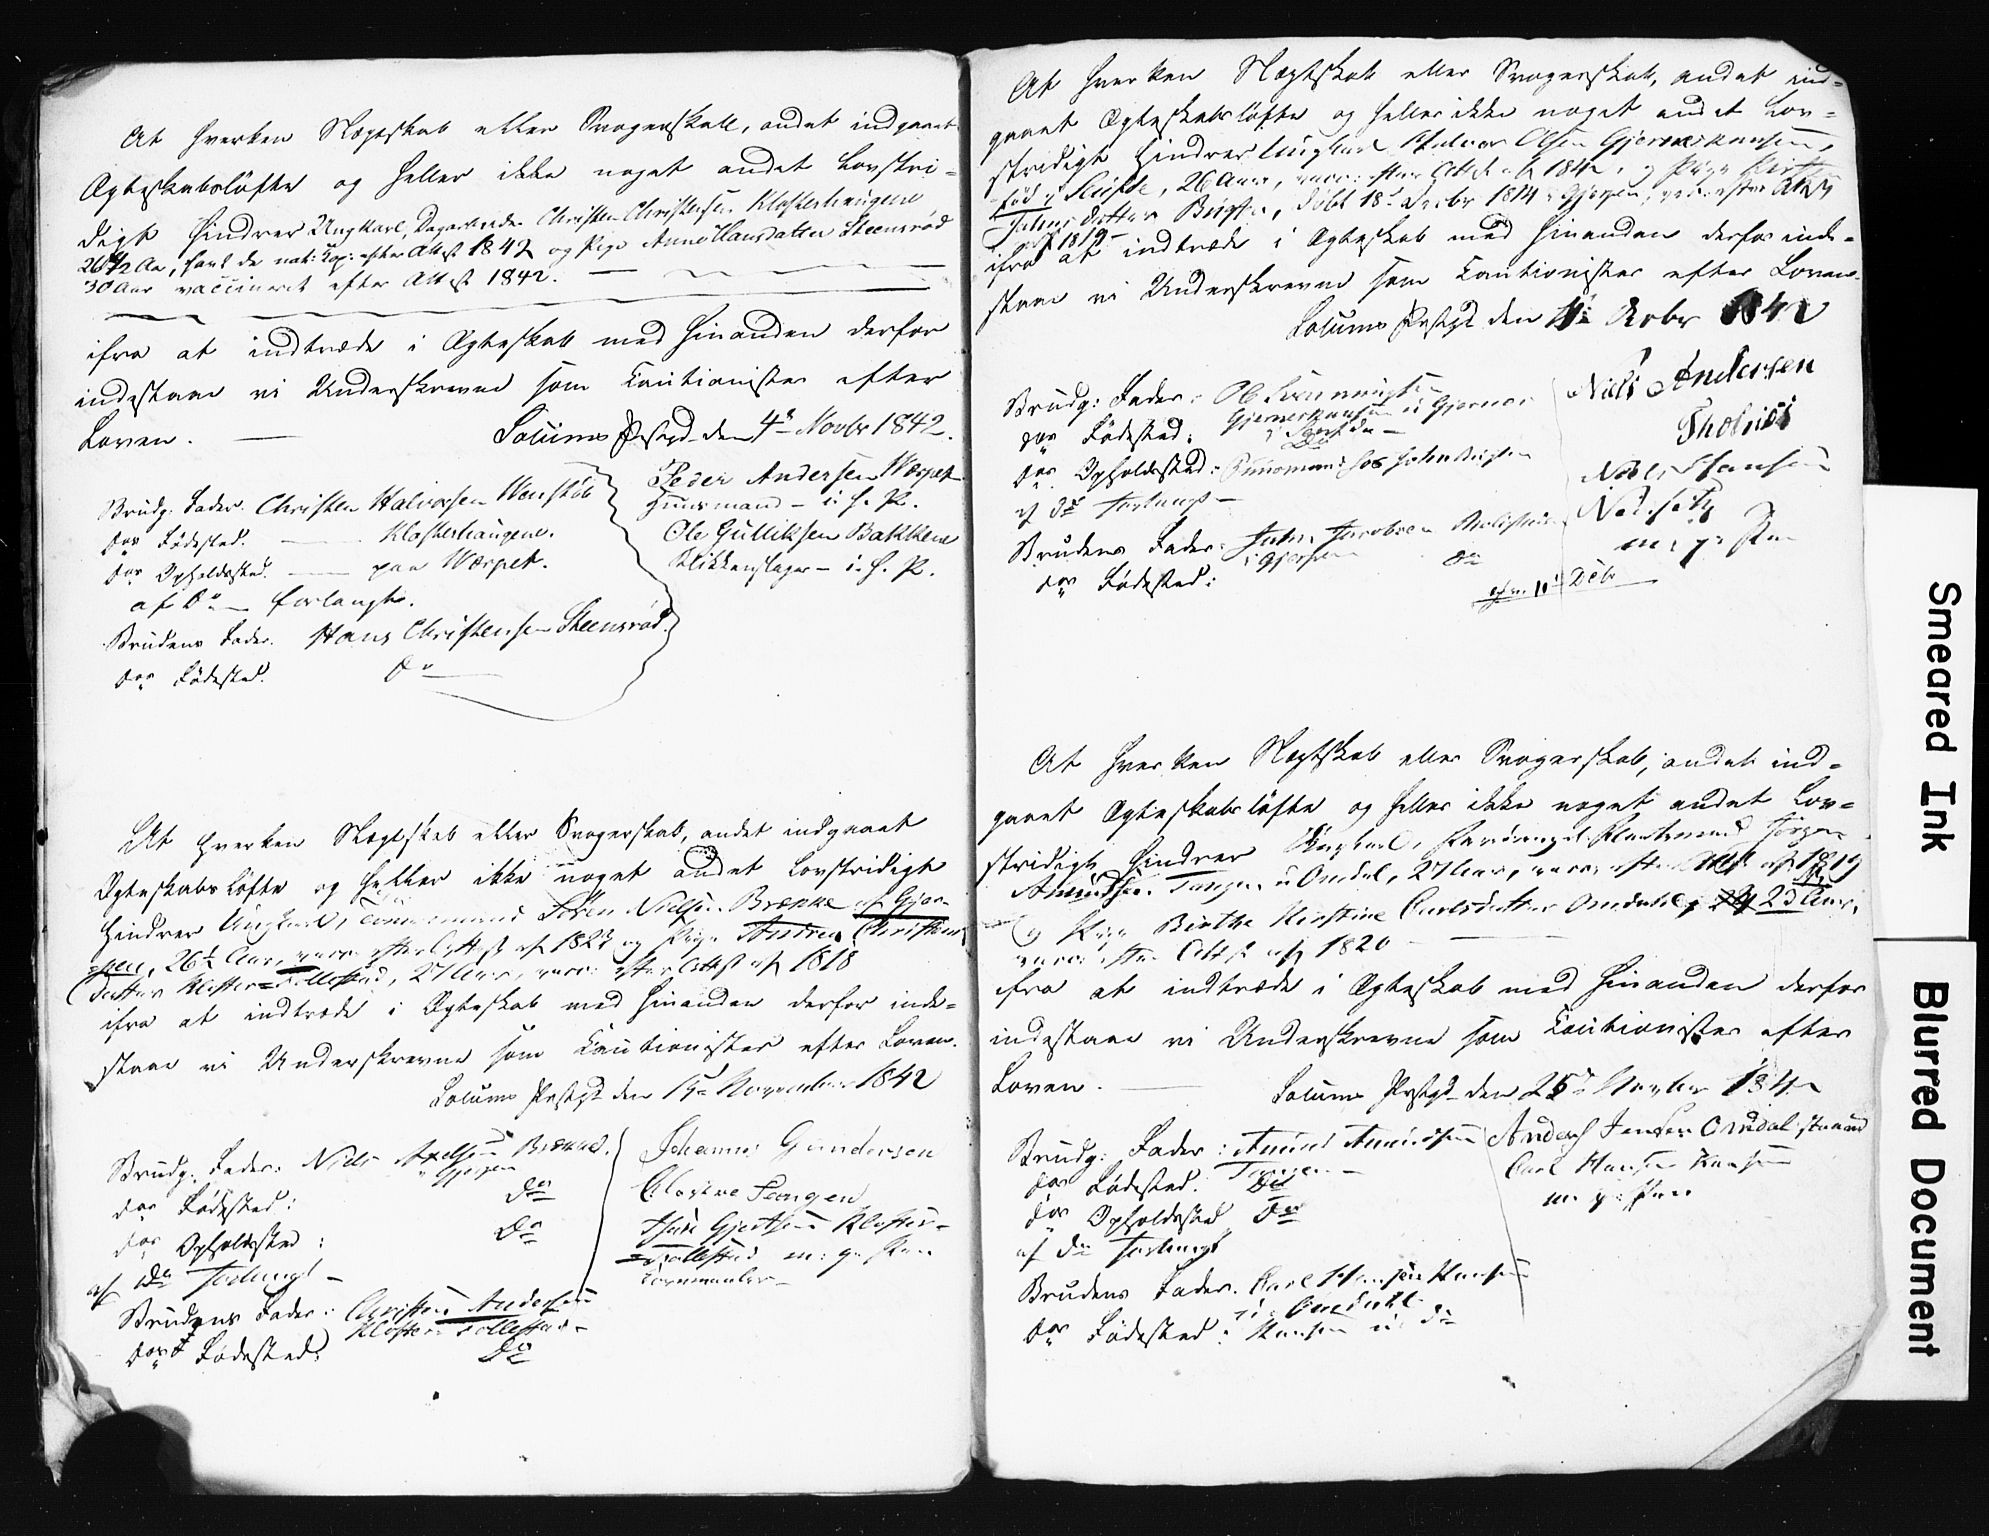 At hverken Slægtskab eller Svogerskab, andet indgaaet
Ægteskabsløfte og heller ikke noget andet Lovstri-
digt hindrer Ungkarl, Dagarbeider Christen Christensen Klosterhaugene
26½ Aar, havt de nat: Kop: efter Attest 1842 og Pige Anne Hansdatter Steensrød
30 Aar vaccineret efter Attest 1842.
ifra at indtræde i Ægteskab med hinanden derfor
indestaae vi Underskrevne som Cautionister efter
Loven.
Solums Prstgd den 4de Novbr 1842.
Brudg: Fader. Christen Halvorsen Wenstøb
Dos Fødested. Klosterhaugene.
Dos Opholdssted. paa Værpet.
af Do forlangt.
Brudens Fader. Hans Christensen Steensrød.
Dos Fødested. Do
Peder Andersen Værpet
Huusmand – i. h. P.
Ole Gulliksen Bakkene
Blikkenslager – i. h. P.
At hverken Slægtskab eller Svogerskab, andet indgaaet
Ægteskabsløfte og heller ikke noget andet Lovstridigt
hindrer Ungkarl, Tømmermand Søren Nielsen Brække af Gjer-
pen, 26½ Aar, vacc: efter Attest af 1823 og Pige Andrea Christens
datter Kloster-Follestad, 27 Aar, vacc: efter Attest af 1818
ifra at indtræde i Ægteskab med hinanden derfor inde-
staae vi Underskrevne som Cautionister efter Loven.
Solums Prstgd den 15de November 1842
Brudg: Fader: Niels Axelsen Brække.
i Gjerpen
Dos Fødested: Do
Dos Opholdssted: Do
af Do Forlangt –
Brudens Fader: Christen Andersen
Kloster-Follestad –
Dos Fødested: Do
Johannes Gundersen
Klostre
Gjertsen Kloster-
Follestad m: p: Pen
At hverken Slægtskab eller Svogerskab, andet ind-
gaaet Ægteskabsløfte og heller ikke noget andet Lov-
stridigt hindrer Ungkarl Halvor Olsen Gjerneskaasen,
fød i 26 Aar, vacc: efter Attest af 1842, og Pige
datter døbt 18de Decbr 1814 i Gjerpen, vacc: efter Attest
af 1819
ifra at indtræde i Ægteskab med hinanden derfor inde-
staae vi Underskrevne som Cautionister efter Loven.
Solums Prstgd den 11te Novbr 1842
Brudg: Fader: Ole
Gjerneskaasen
Dos Fødested: Do
Dos Opholdssted:
af Do Forlangt –
Brudens Fader: John Jacobsen
i Gjerpen
Dos Fødested: Do
Niels Andersen
Niels Hansen
m: p: Pen
10de Debr
At hverken Slægtskab eller Svogerskab, andet ind-
gaaet Ægteskabsløfte og heller ikke noget andet Lov-
stridigt hindrer Ungkarl, Jørgen
Amundsen Tangen u: Omdal, 27 Aar, vacc: efter Attest af 1819
og Pige Birthe Kirstine Carlsdatter Omdal 23 Aar,
vacc: efter Attest af 1820
ifra at indtræde i Ægteskab med hinanden derfor
indestaae vi Underskrevne som Cautionister efter
Loven.
Solums Prstgd den 25de Novbr 1842
Brudg: Fader: Amund Amundsen
Tangen –
Dos Fødested. Do
Dos Opholdssted Do
af Do Forlangt
Brudens Fader. Carl Hansen
u: Omdal
Dos Fødested: u: Do
Anders Jensen Omdal
Carl Hansen
m: p: Pen
Smeared Ink
Blurred Document